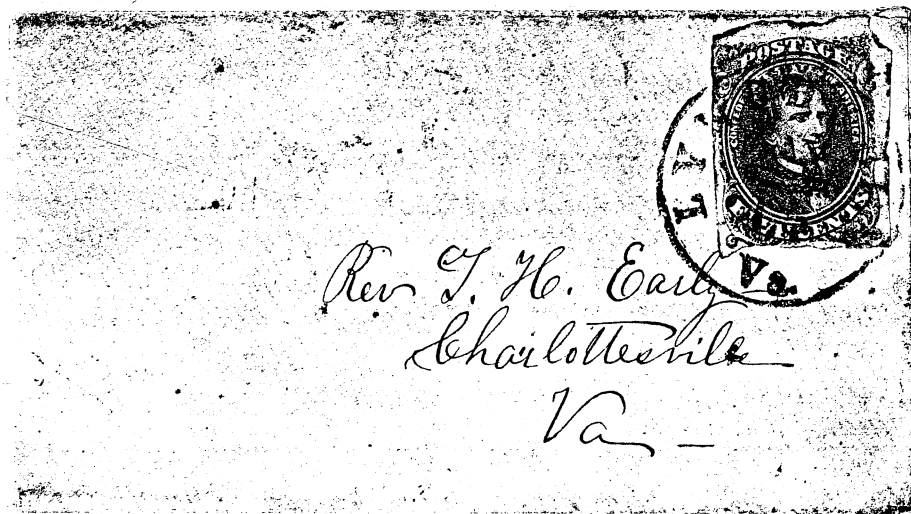 POSTAGE
Rev T. H. Early
Charlottesville
Va
Va.